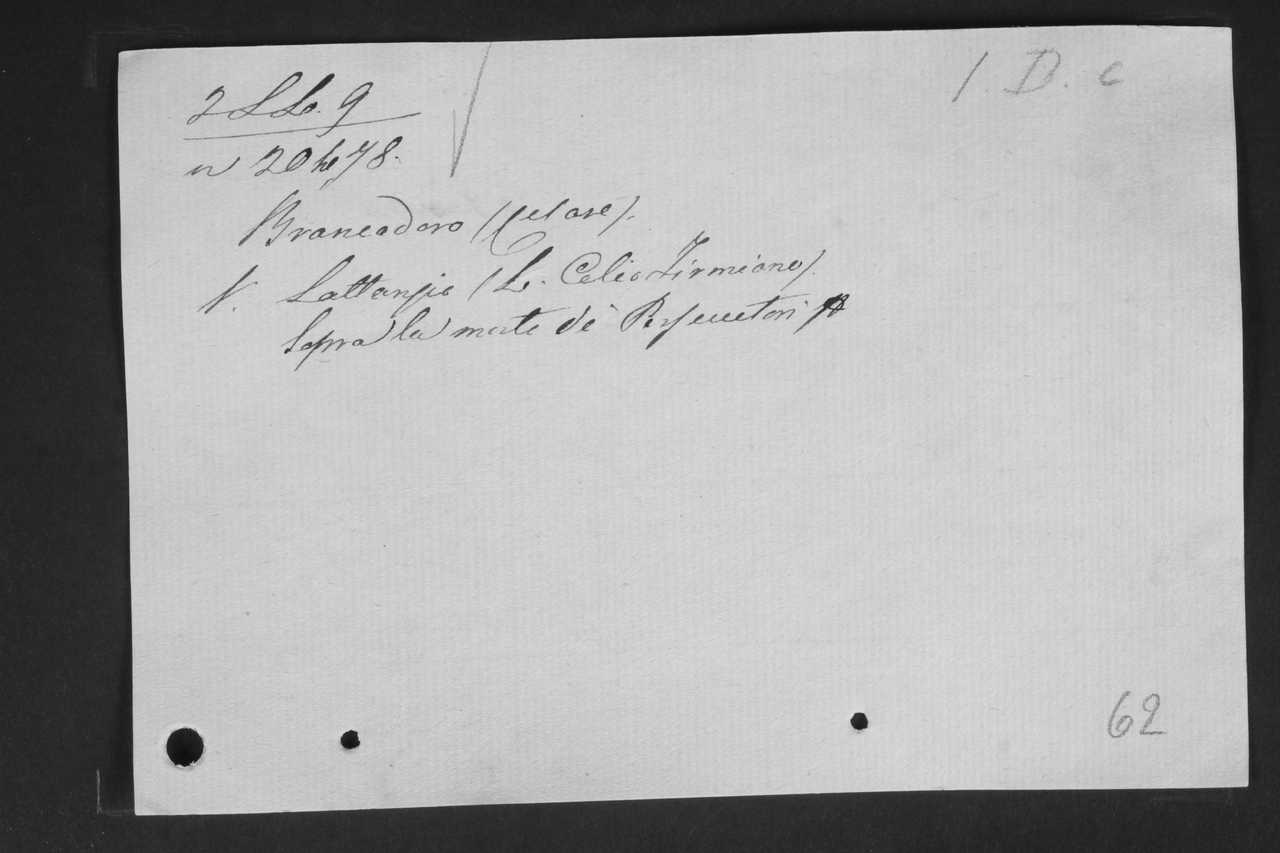 1. D. c
2 L Lo. 9
n 20478.
Brancadoro (Cesare).
V. Lattanzio (L. Celio Firmiano).
Sopra la morte de' Persecutori
62